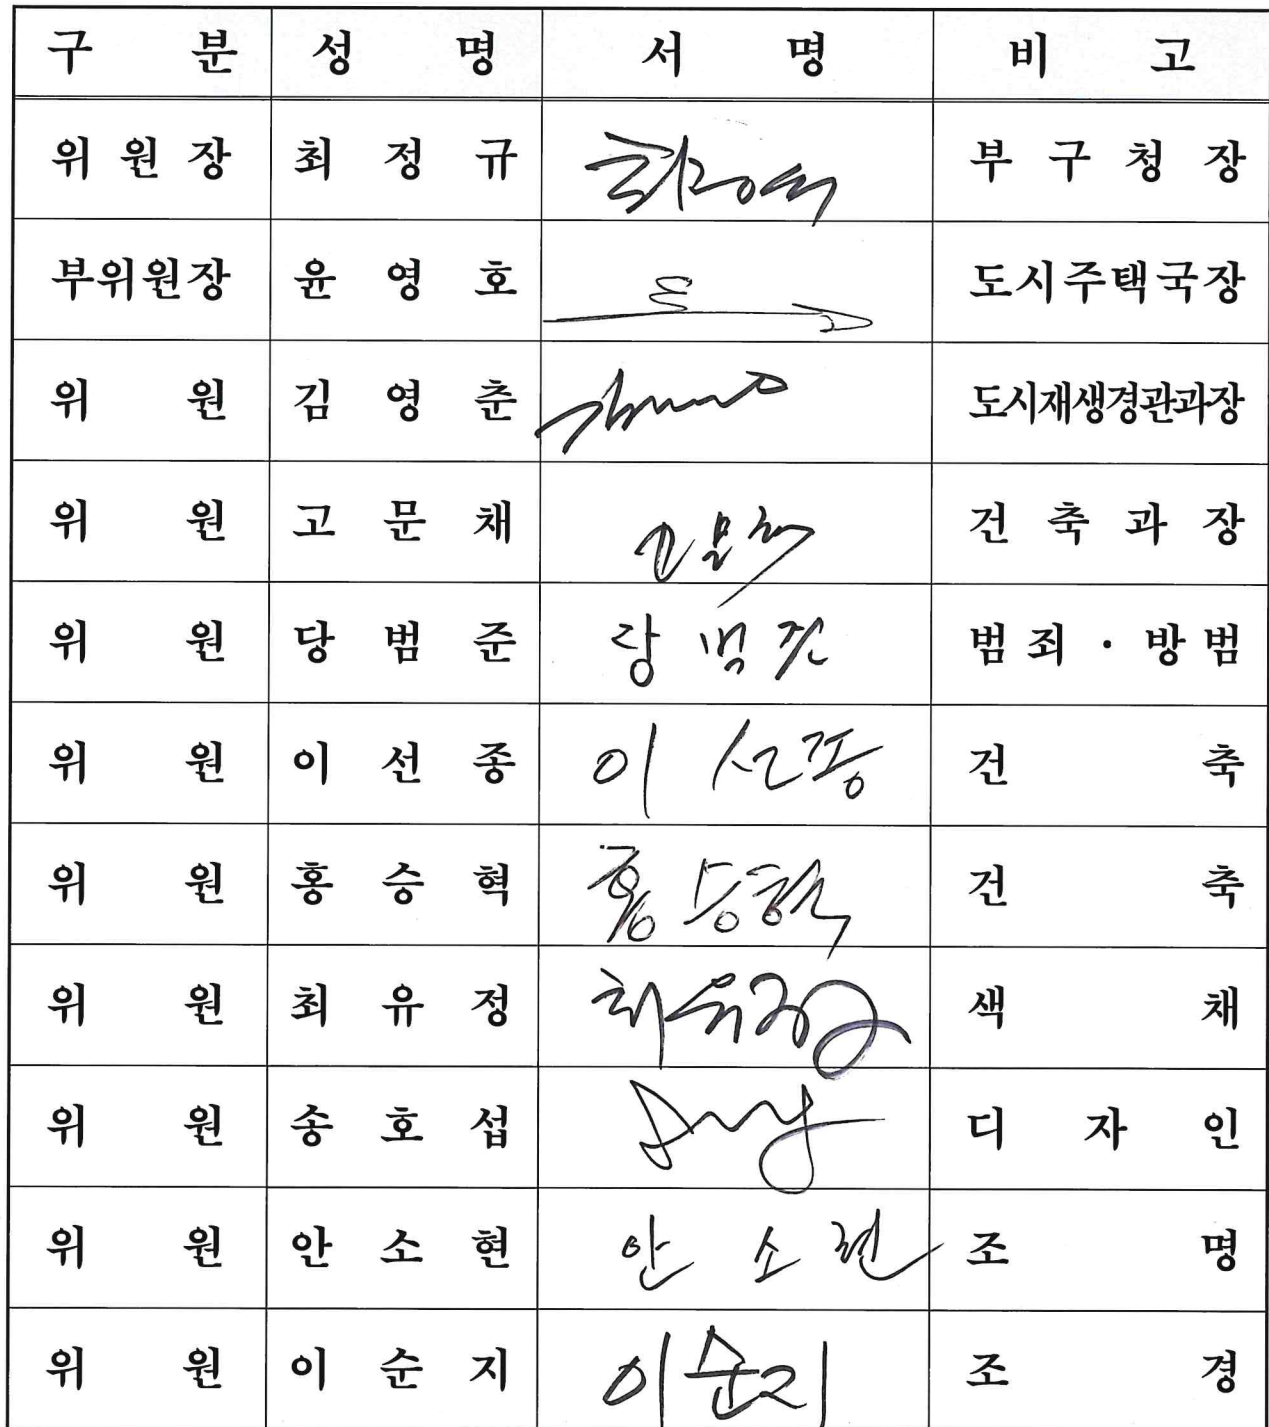 구 분 성 명 서 명 비 고
위 원 장 최 정 규 부 구 청 장
부위원장 윤 영 호 도시주택국장
위 원 김 영 춘 도시재생경관과장
위 원 고 문 채 고문채 건 축 과 장
위 원 당 범 준 당 범 준 범 죄 · 방 범
위 원 이 선 종 이 선 종 건 축
위 원 홍 승 혁 홍 승 혁 건 축
위 원 최 유 정 최유정 색 채
위 원 송 호 섭 디 자 인
위 원 안 소 현 안 소 현 조 명
위 원 이 순 지 이순지 조 경